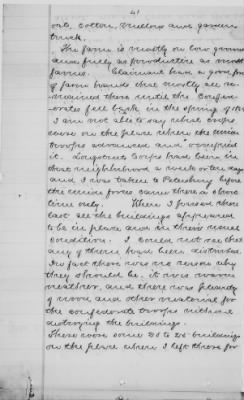 41
oats, cotton, melons and garden
truck.
The farm is mostly on low ground
and fully as productive as most
farms. Claimant had a good force
of farm hands that mostly all re-
mained there until the Confed-
erates fell back in the spring of
I am not able to say what crops
were on the place when the Union
troops advanced and occupied
it. Longstreets Corps had been in
that neighborhood a week or ten days
and I was taken to Petersburg before
the Union forces came there a short
time only. When I passed there
last all the buildings appeared
to be in place and in their usual
condition. I could not see that
any of them had been disturbed
In fact there was no reason why
they should be. It was warm
weather, and there was plenty
of wood and other material for
the confederate troops without
destroying the buildings.
There were some 20 to 25 buildings
on the place when I left there for